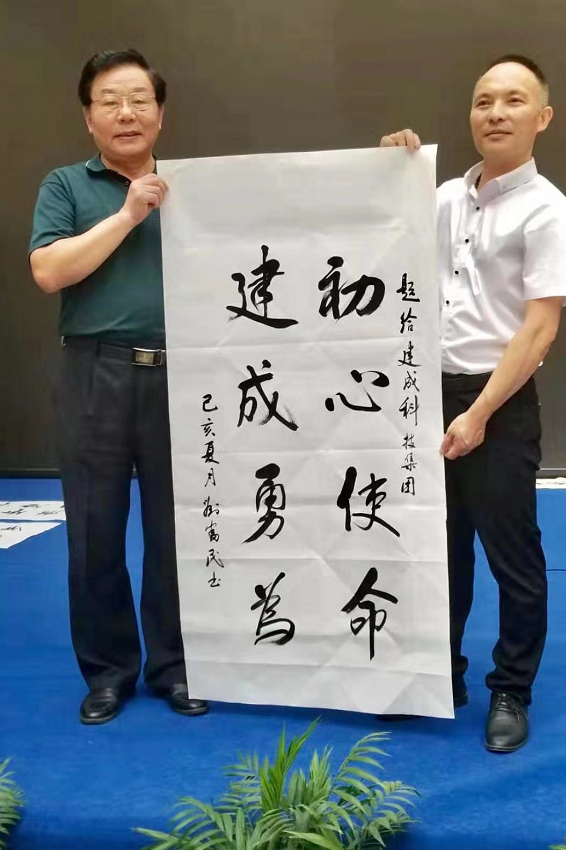 题给建成科技集团
初心使命
建成勇为
己亥夏月刘富民书